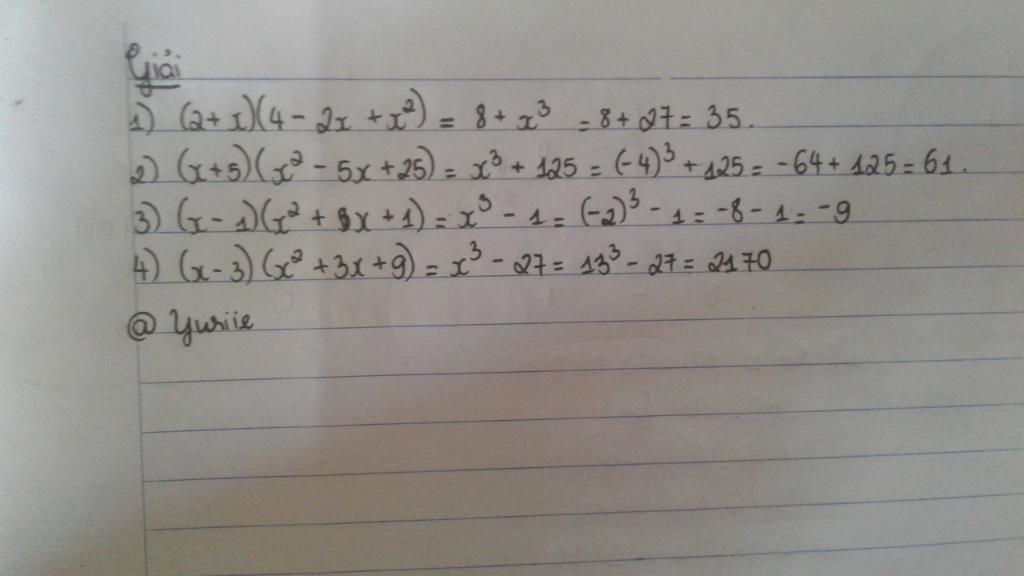 Giải
1) (2+x)(4 - 2x + x²) = 8 + x³ = 8 + 27 = 35.
2) (x+5)(x² - 5x + 25) = x³ + 125 = (-4)³ + 125 = -64 + 125 = 61.
3) (x - 1)(x² + x + 1) = x³ - 1 = (-2)³ - 1 = -8 - 1 = -9
4) (x - 3)(x² + 3x + 9) = x³ - 27 = 13³ - 27 = 2170
@ Yuriie